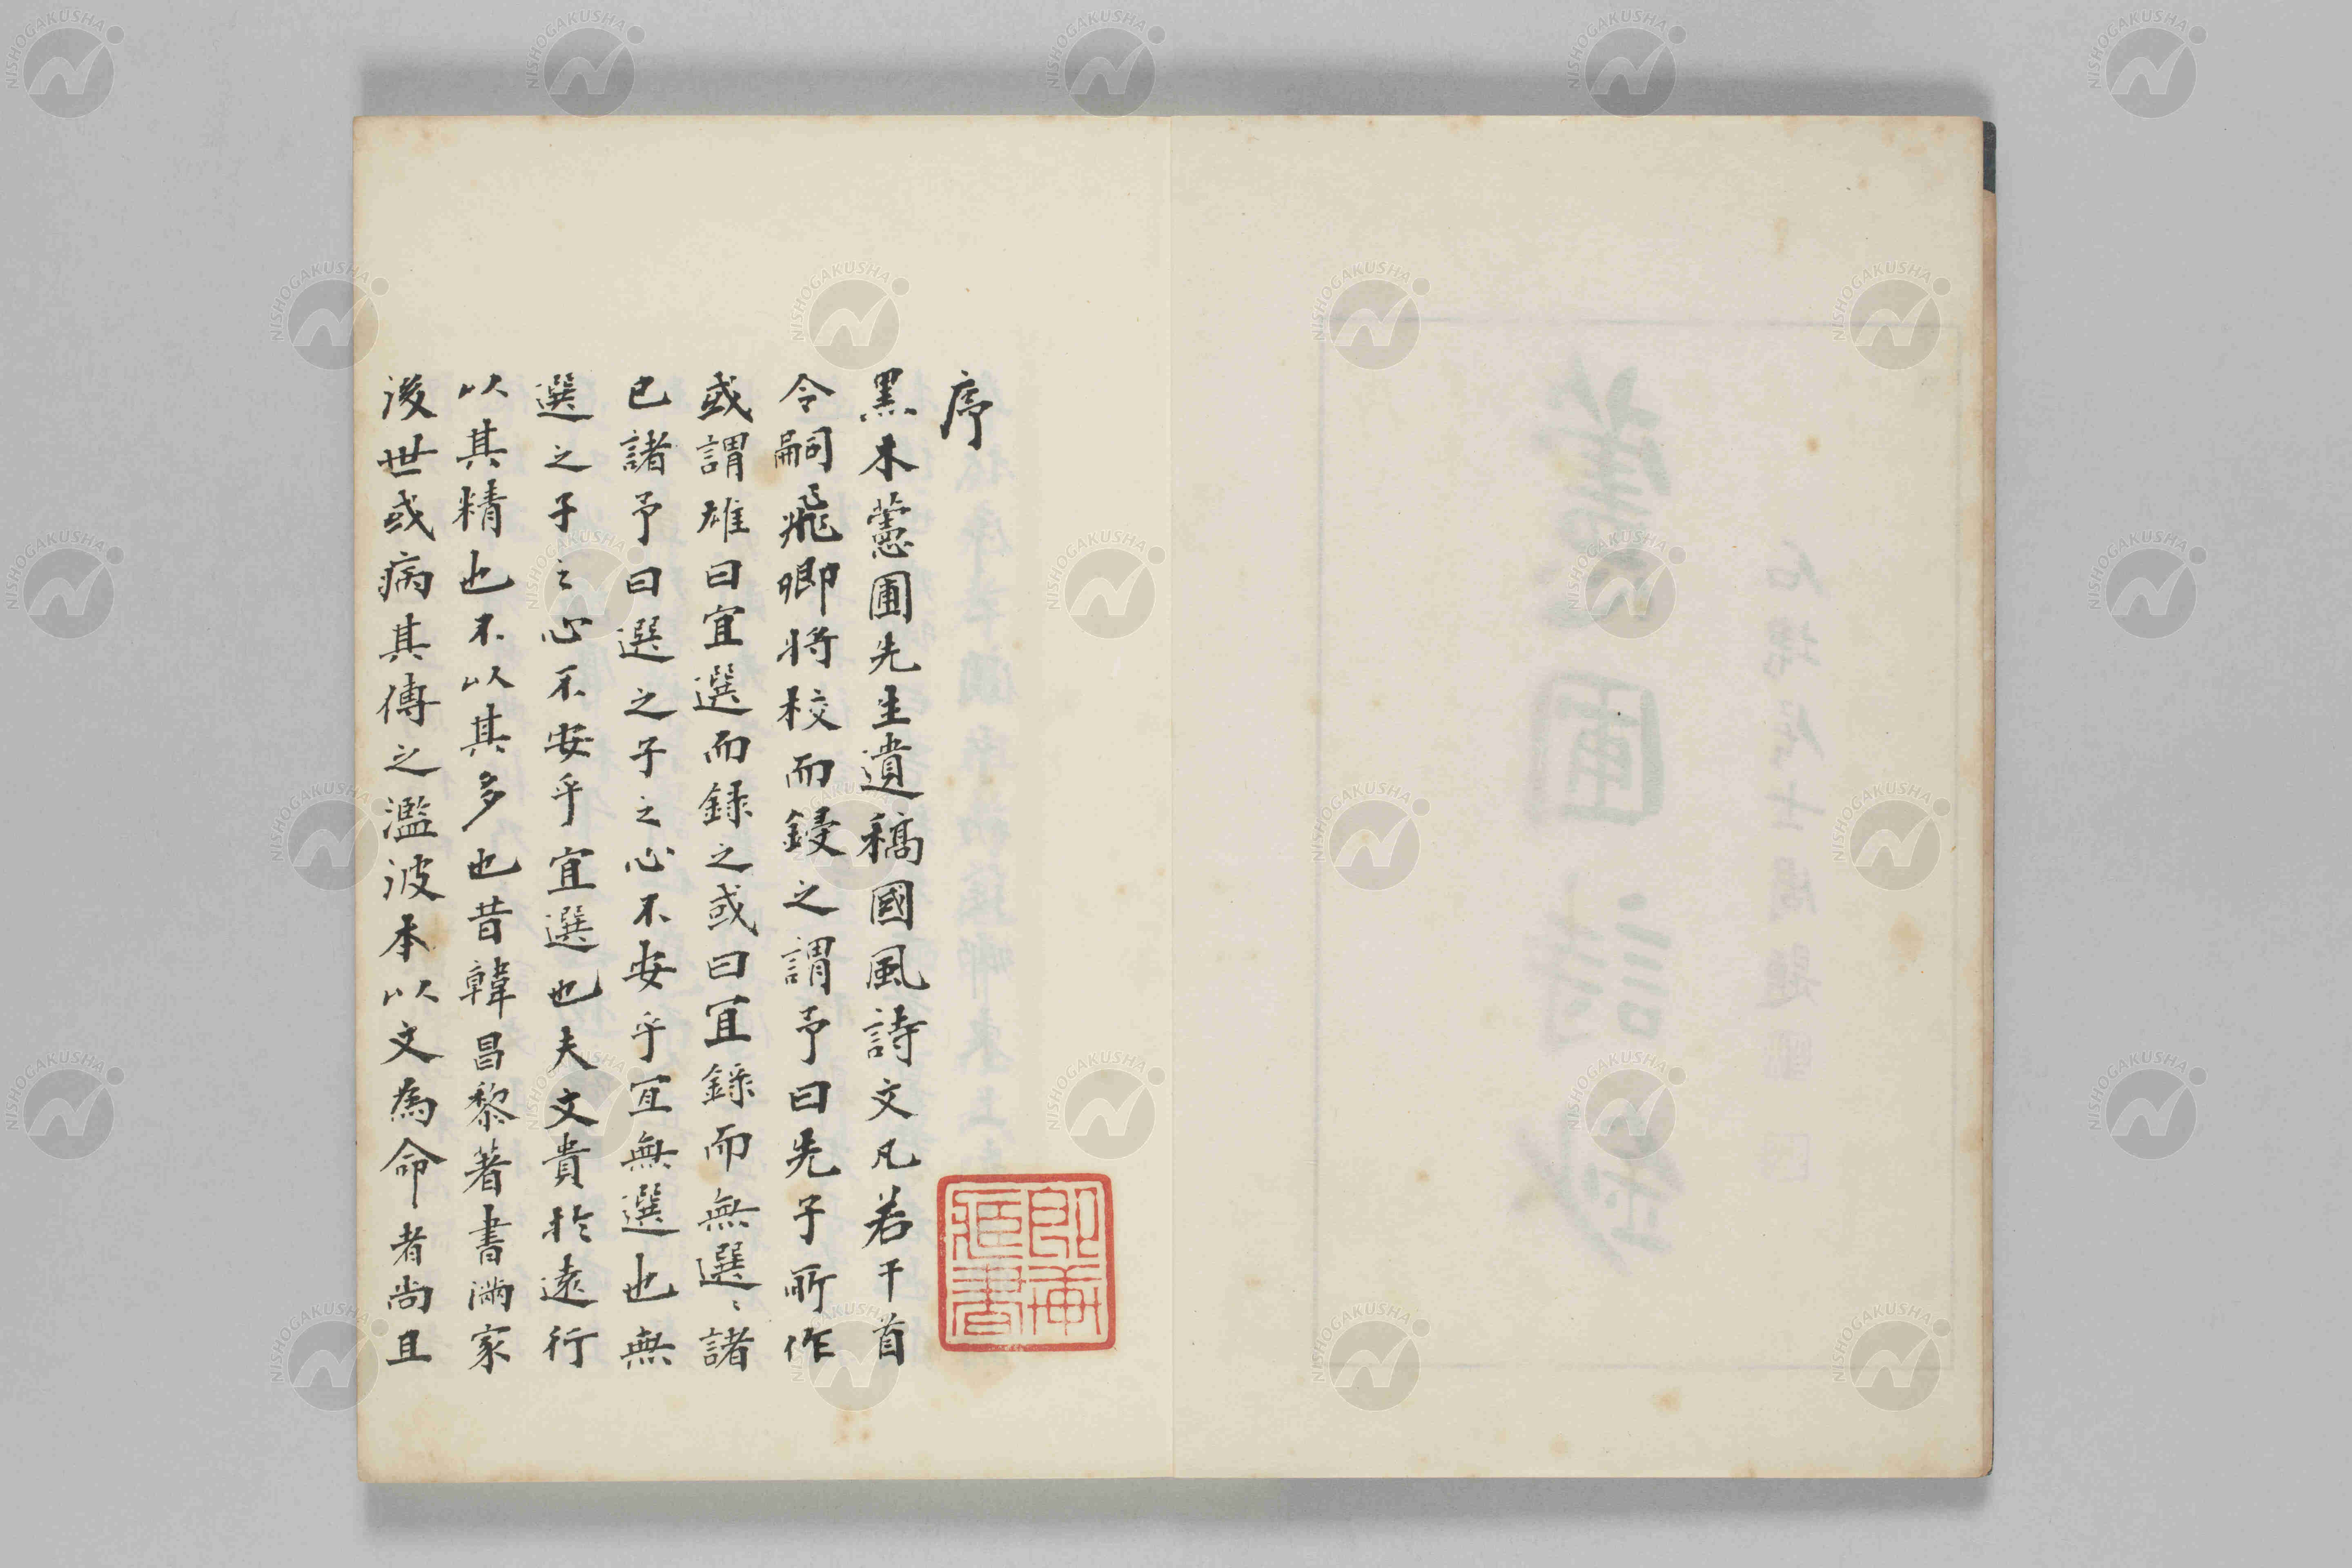 序
黒木蕙圃先生遺稿國風詩文凡若干首
令嗣飛卿将校而鋟之謂予曰先子所作
或謂雄曰宜選而録之或曰宜録而無選〻諸
已諸予曰選之子之心不安乎宜無選也無
選之子之心不安乎宜選也夫文貴於遠行
以其精也不以其多也昔韓昌黎著書満家
後世或病其傳之濫波本以文為命者尚且
NISHOGAKUSHA